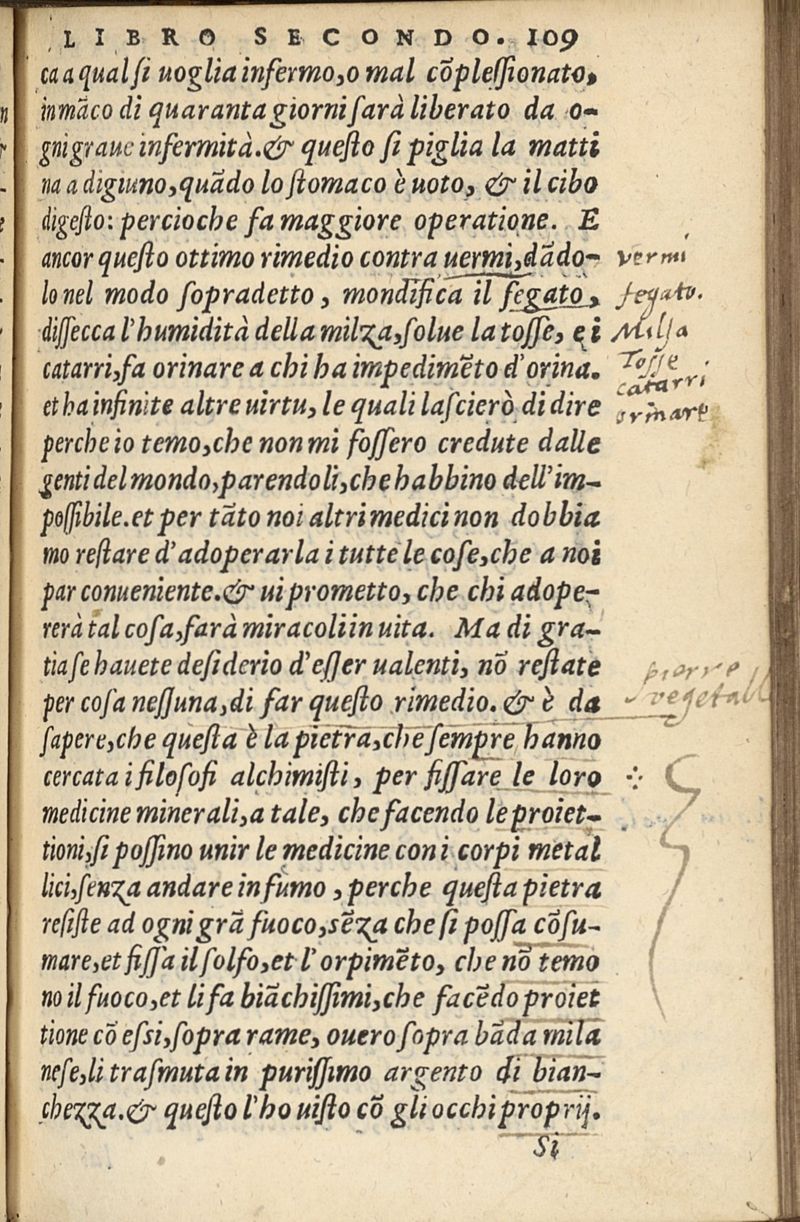 LIBRO SECONDO. 109
ca a qual si uoglia infermo, o mal cõplessionato,
in mãco di quaranta giorni sarà liberato da o-
gni graue infermità. & questo si piglia la matti
na a digiuno, quãdo lo stomaco è uoto, & il cibo
digesto: percioche fa maggiore operatione. E
ancor questo ottimo rimedio contra uermi, dãdo-
vermi
lo nel modo sopradetto, mondifica il fegato,
fegato.
dissecca l'humidità della milza, solue la tosse, e i
Milza
catarri, fa orinare a chi ha impedimẽto d'orina.
Tosse
catarri
et ha infinite altre uirtu, le quali lascierò di dire
orinare
perche io temo, che non mi fossero credute dalle
genti del mondo, parendoli, che habbino dell'im-
possibile. et per tãto noi altri medici non dobbia
mo restare d'adoperarla i tutte le cose, che a noi
par conueniente. & ui prometto, che chi adope-
rerà tal cosa, farà miracoli in uita. Ma di gra-
tia se hauete desiderio d'esser ualenti, nõ restate
pierre
per cosa nessuna, di far questo rimedio. & è da
vegetall
sapere, che questa è la pietra, che sempre hanno
cercata i filosofi alchimisti, per fissare le loro
medicine minerali, a tale, che facendo le proiet-
tioni, si possino unir le medicine con i corpi metal
lici, senza andare in fumo, perche questa pietra
resiste ad ogni grã fuoco, sẽza che si possa cõsu-
mare, et fissa il solfo, et l'orpimẽto, che nõ temo
no il fuoco, et li fa biãchissimi, che facẽdo proiet
tione cõ essi, sopra rame, ouero sopra bãda mila
nese, li trasmuta in purissimo argento di bian-
chezza. & questo l'ho uisto cõ gli occhi proprij.
Si